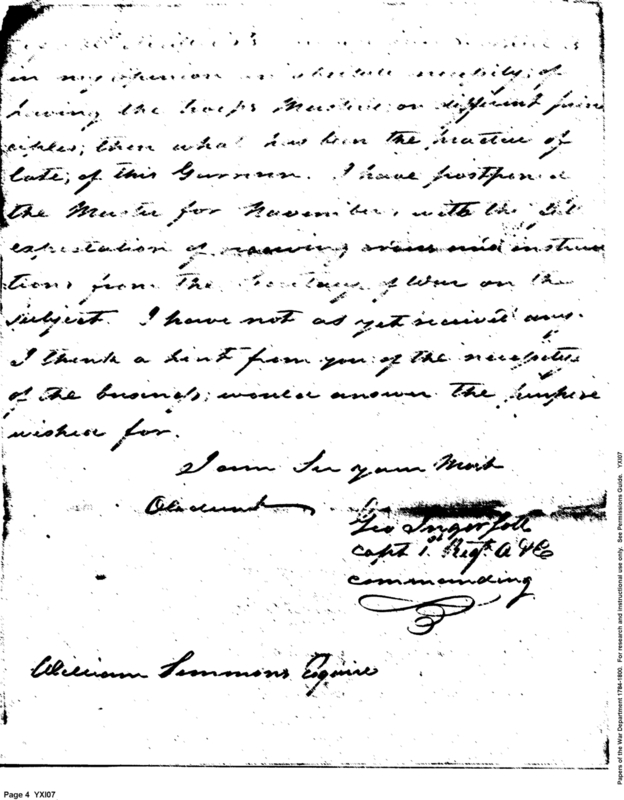 in my opinion an absolute necessity; of
having the troops Mustered on different prin
ciples; then what has been the practice of
late; of this Garrison. I have postponed
the Muster for November, with the full
expectation of receiving instruc
tions from the Secretary of War on the
subject. I have not as yet received any.
I think a hint from you of the necessity
of the business; would answer the purpose
wished for.
I am Sir your Most
Obedient
Geo Ingersoll
Capt 1st Regt. A & E
commanding
William Simmons Esquire
Page 4 YXI07
Papers of the War Department 1784-1800. For research and instructional use only. See Permissions Guide. YXI07